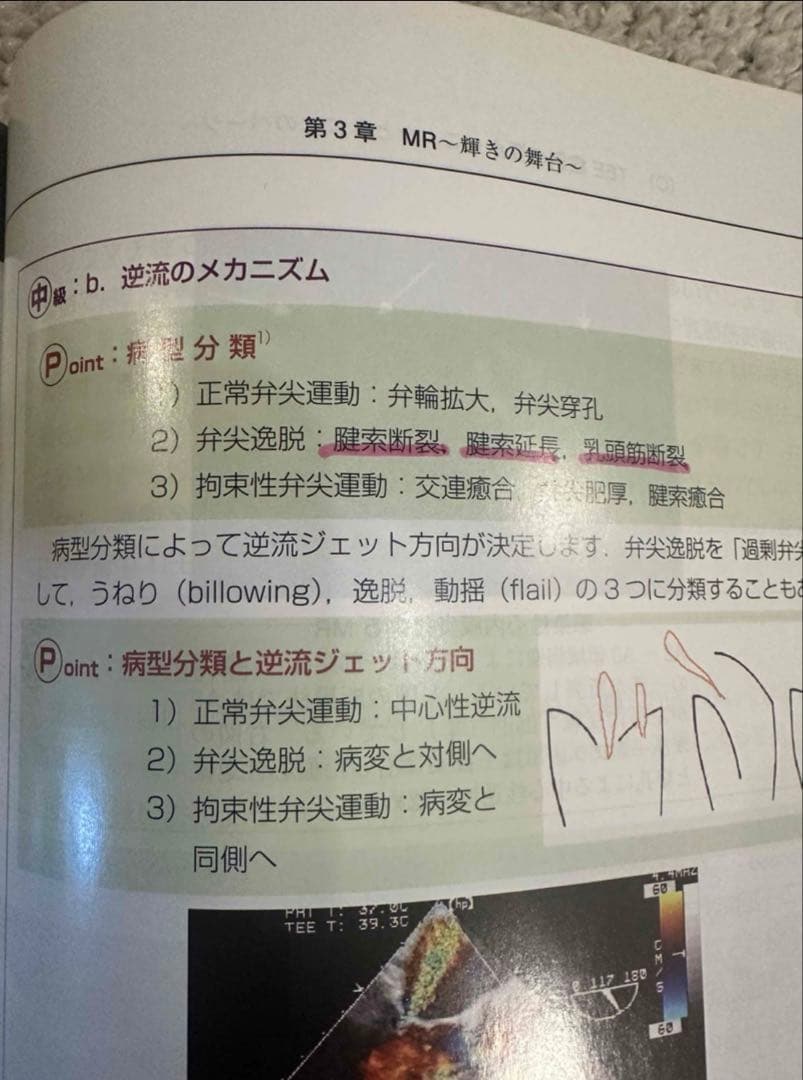 第3章 MR～輝きの舞台～
中級：b．逆流のメカニズム
Point：病型分類1)
1）正常弁尖運動：弁輪拡大，弁尖穿孔
2）弁尖逸脱：腱索断裂，腱索延長，乳頭筋断裂
3）拘束性弁尖運動：交連癒合，弁尖肥厚，腱索癒合
病型分類によって逆流ジェット方向が決定します．弁尖逸脱を「過剰弁尖
して，うねり（billowing），逸脱，動揺（flail）の3つに分類することもあ
Point：病型分類と逆流ジェット方向
1）正常弁尖運動：中心性逆流
2）弁尖逸脱：病変と対側へ
3）拘束性弁尖運動：病変と
同側へ
4.4MHz
PAT T: 37.0C
TEE T: 39.3C
(hp)
60
CM/S
0 117 180
60